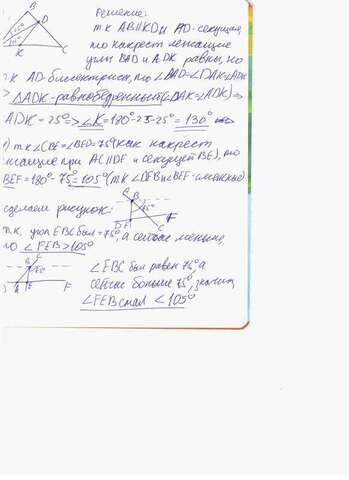 B
D
25°
25°
K
C
Решение:
т.к AB||KD и AD-секущая,
то накрест лежащие
углы BAD и ADK равны, но
к AD-биссектриса, то ∠BAD=∠DAK=∠ADK
> △ADK-равнобедренный (∠DAK=∠ADK)=>
ADK=25°=> ∠K=180°-25-25°=130°
) т.к ∠CBE=∠BED=75° (как накрест
лежащие при AC||DF и секущей BE), то
BEF=180°-75°=105° (т.к ∠DEB и ∠BEF-смежные)
сделаем рисунок:
B
75°
D E
F
т.к. угол EBC был =75°, а сейчас меньше,
то ∠FEB>105°
B
C
E
F
∠EBC был равен 75°, а
сейчас больше 75°, значит
∠FEB стал <105°